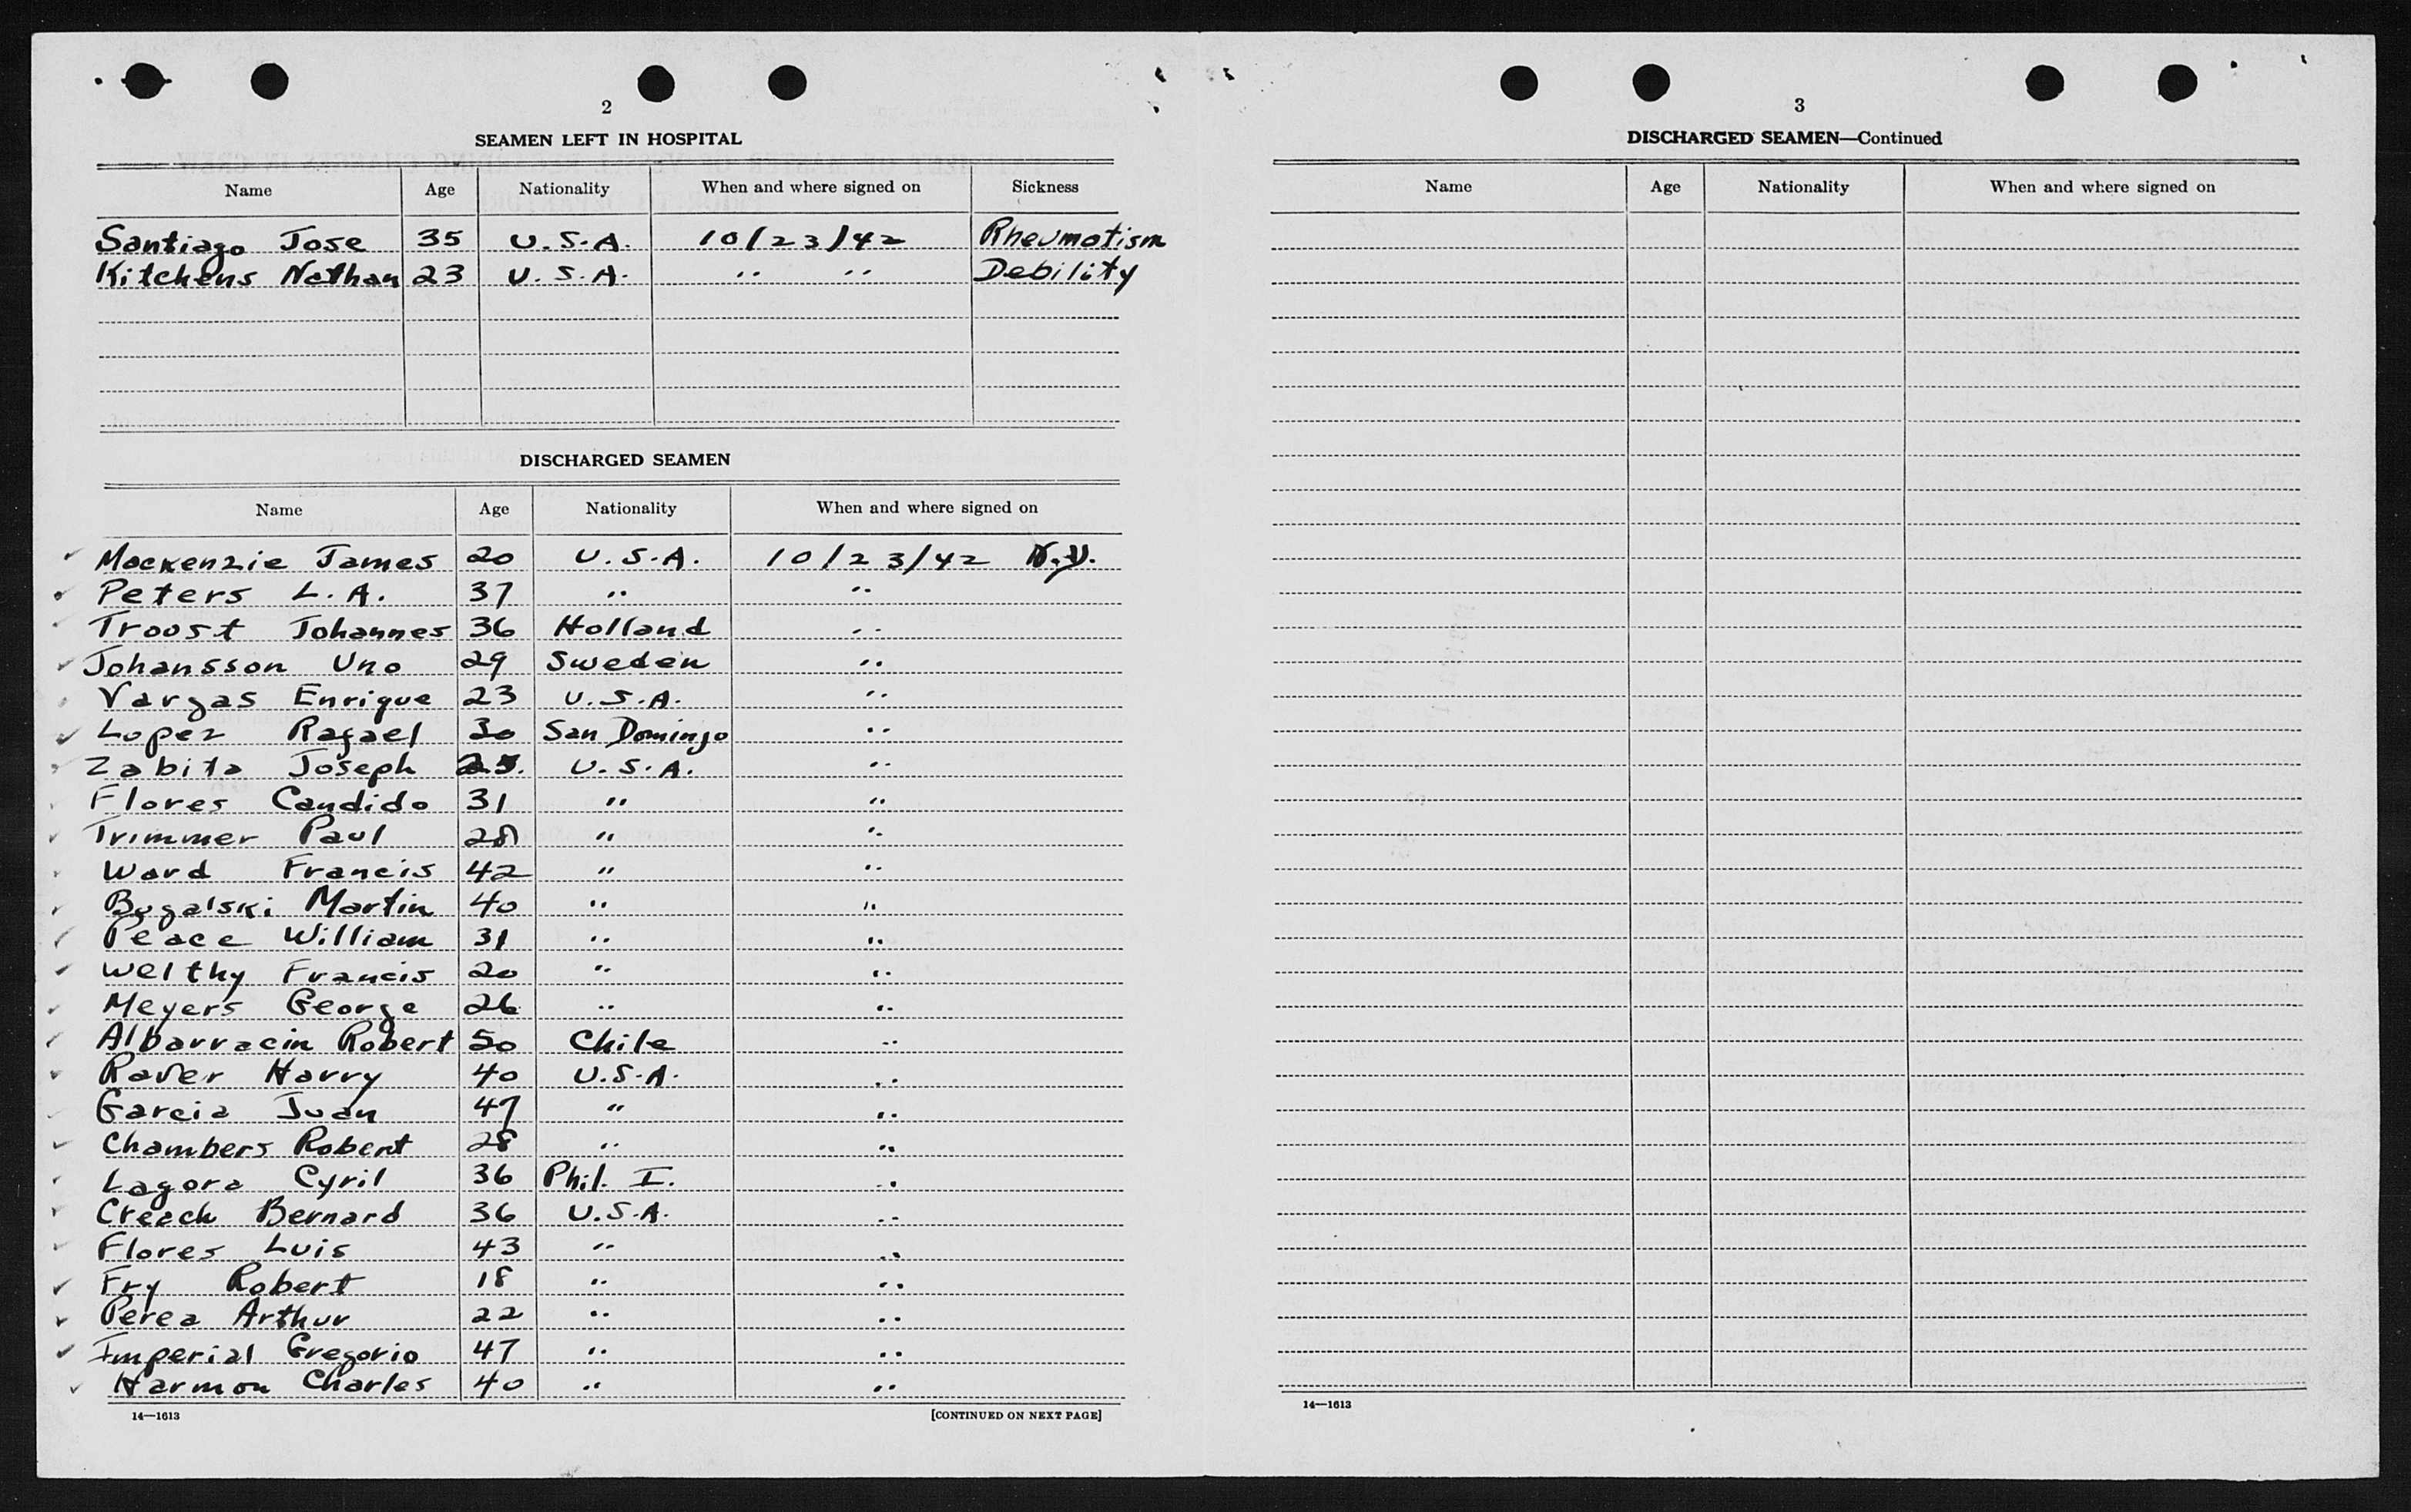 2
SEAMEN LEFT IN HOSPITAL
Name Age Nationality When and where signed on Sickness
Santiago Jose 35 U.S.A. 10/23/42 Rheumatism
Kitchens Nathan 23 U.S.A. " " Debility
DISCHARGED SEAMEN
Name Age Nationality When and where signed on
Mackenzie James 20 U.S.A. 10/23/42 N.Y.
Peters L.A. 37 " "
Troost Johannes 36 Holland "
Johansson Uno 29 Sweden "
Vargas Enrique 23 U.S.A. "
Lopez Rafael 30 San Domingo "
Zabita Joseph 25 U.S.A. "
Flores Candido 31 " "
Trimmer Paul 28 " "
Ward Francis 42 " "
Bugalski Martin 40 " "
Peace William 31 " "
Welthy Francis 20 " "
Meyers George 26 " "
Albarracin Robert 50 Chile "
Raver Harry 40 U.S.A. "
Garcia Juan 47 " "
Chambers Robert 28 " "
Lagora Cyril 36 Phil. I. "
Creach Bernard 36 U.S.A. "
Flores Luis 43 " "
Fry Robert 18 " "
Perea Arthur 22 " "
Imperial Gregorio 47 " "
Harmon Charles 40 " "
14—1613 [CONTINUED ON NEXT PAGE]
3
DISCHARGED SEAMEN—Continued
Name Age Nationality When and where signed on
14—1613